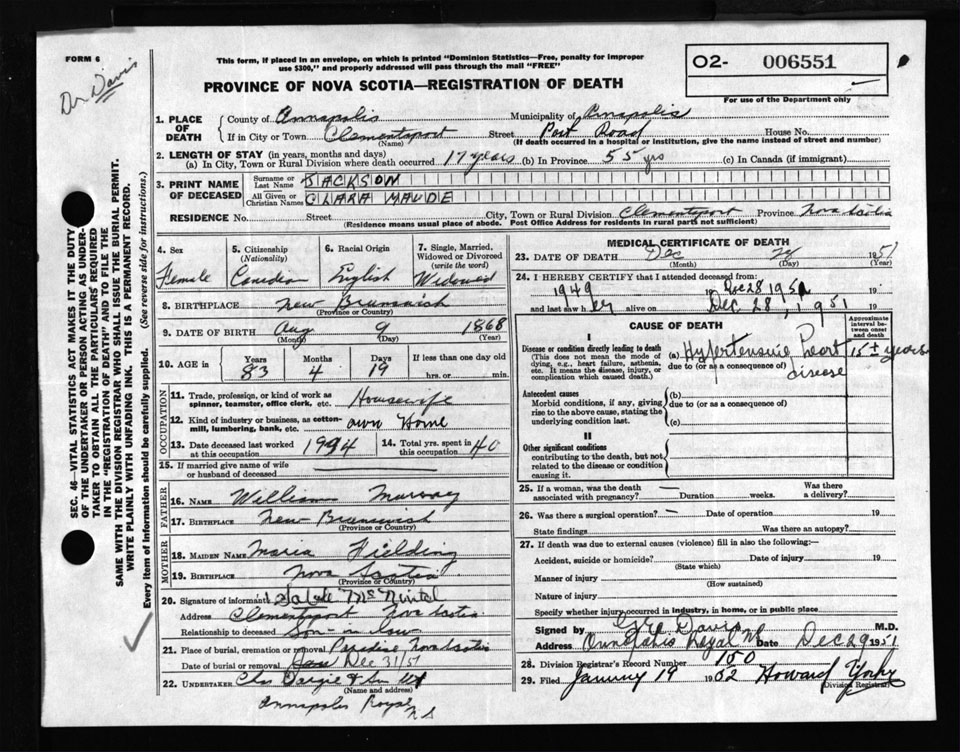 FORM 6
Dr Davis
This form, if placed in an envelope, on which is printed "Dominion Statistics—Free, penalty for improper
use $300," and properly addressed will pass through the mail "FREE"
O2- 006551
For use of the Department only
PROVINCE OF NOVA SCOTIA—REGISTRATION OF DEATH
1. PLACE OF DEATH County of Annapolis Municipality of Annapolis
If in City or Town Clementsport (Name) Street Post Road House No.
(If death occurred in a hospital or institution, give its name instead of street and number)
2. LENGTH OF STAY (in years, months and days)
(a) In City, Town or Rural Division where death occurred 17 years (b) In Province 55 yrs (c) In Canada (if immigrant)
3. PRINT NAME OF DECEASED Surname or Last Name JACKSON
All Given or Christian Names CLARA MAUDE
RESIDENCE No. Street City, Town or Rural Division Clementsport Province Nova Scotia
(Residence means usual place of abode. Post Office Address for residents in rural parts not sufficient)
4. Sex Female
5. Citizenship (Nationality) Canadian
6. Racial Origin English
7. Single, Married, Widowed or Divorced (write the word) Widowed
8. BIRTHPLACE New Brunswick
(Province or Country)
9. DATE OF BIRTH Aug 9 1868
(Month) (Day) (Year)
10. AGE in Years 83 Months 4 Days 19 If less than one day old hrs. or min.
OCCUPATION
11. Trade, profession, or kind of work as spinner, teamster, office clerk, etc. Housewife
12. Kind of industry or business, as cotton-mill, lumbering, bank, etc. own Home
13. Date deceased last worked at this occupation 1944
14. Total yrs. spent in this occupation 40
15. If married give name of wife or husband of deceased
FATHER
16. NAME William Murray
17. BIRTHPLACE New Brunswick
(Province or Country)
MOTHER
18. MAIDEN NAME Maria Fielding
19. BIRTHPLACE Nova Scotia
(Province or Country)
20. Signature of informant
Address Clementsport Nova Scotia
Relationship to deceased Son-in-law
21. Place of burial, cremation or removal Paradise Nova Scotia
Date of burial or removal Dec 31/51
22. UNDERTAKER Chas Dargie & Son
(Name and address)
Annapolis Royal
N S
MEDICAL CERTIFICATE OF DEATH
23. DATE OF DEATH Dec 28 1951
(Month) (Day) (Year)
24. I HEREBY CERTIFY that I attended deceased from:
1949 19 Dec 28 1951 19
and last saw her alive on Dec 28, 1951 19
CAUSE OF DEATH
Approximate interval between onset and death
I
Disease or condition directly leading to death
(This does not mean the mode of dying, e.g., heart failure, asthenia, etc. It means the disease, injury, or complication which caused death.)
(a) Hypertensive Heart disease 15± years
due to (or as a consequence of)
Antecedent causes
Morbid conditions, if any, giving rise to the above cause, stating the underlying condition last.
(b)
due to (or as a consequence of)
(c)
II
Other significant conditions
contributing to the death, but not related to the disease or condition causing it.
25. If a woman, was the death associated with pregnancy? Duration weeks. Was there a delivery?
26. Was there a surgical operation? Date of operation 19
State findings Was there an autopsy?
27. If death was due to external causes (violence) fill in also the following:
Accident, suicide or homicide? Date of injury 19
(State which)
Manner of injury
(How sustained)
Nature of injury
Specify whether injury occurred in industry, in home, or in public place
Signed by Davis M.D.
Address Annapolis Royal Date Dec 29 1951
28. Division Registrar's Record Number 150
29. Filed January 19 1952 Howard
(Division Registrar)
SEC. 46—VITAL STATISTICS ACT MAKES IT THE DUTY
OF THE UNDERTAKER OR PERSON ACTING AS UNDER-
TAKER TO OBTAIN ALL THE PARTICULARS REQUIRED
IN THE "REGISTRATION OF DEATH" AND TO FILE THE
SAME WITH THE DIVISION REGISTRAR WHO SHALL ISSUE THE BURIAL PERMIT.
WRITE PLAINLY WITH UNFADING INK. THIS IS A PERMANENT RECORD.
Every item of Information should be carefully supplied. (See reverse side for instructions.)